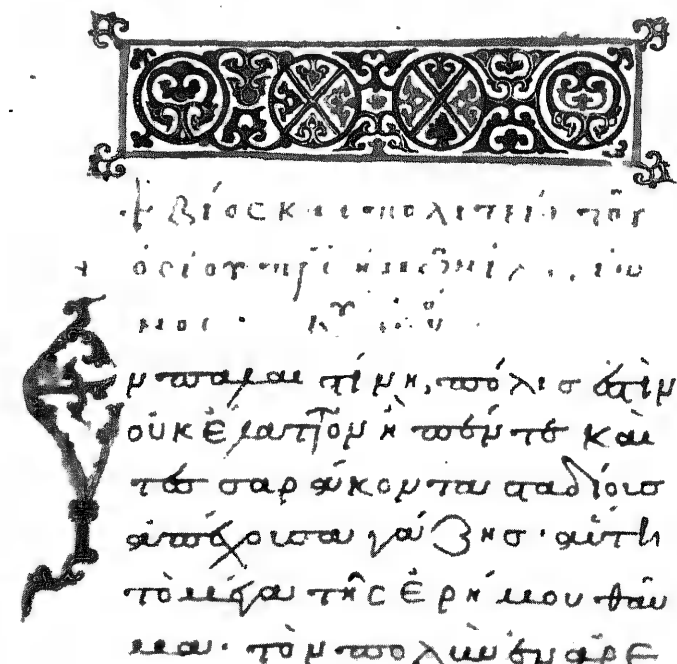 Βίος καὶ πολιτεία τοῦ
ὁσίου πρς ἡμῶν
νος
Ἐν παλαιστίνη, πόλισ ἐστὶν
οὐκ ἔλαττον ἢ πέντε καὶ
τεσσαράκοντα σταδίοισ
ἀπέχουσα γάζησ· αὕτη
τὸ μέγα τῆς ἐρήμου θαῦ
μα· τὸν πολὺν ἐν ἀρε